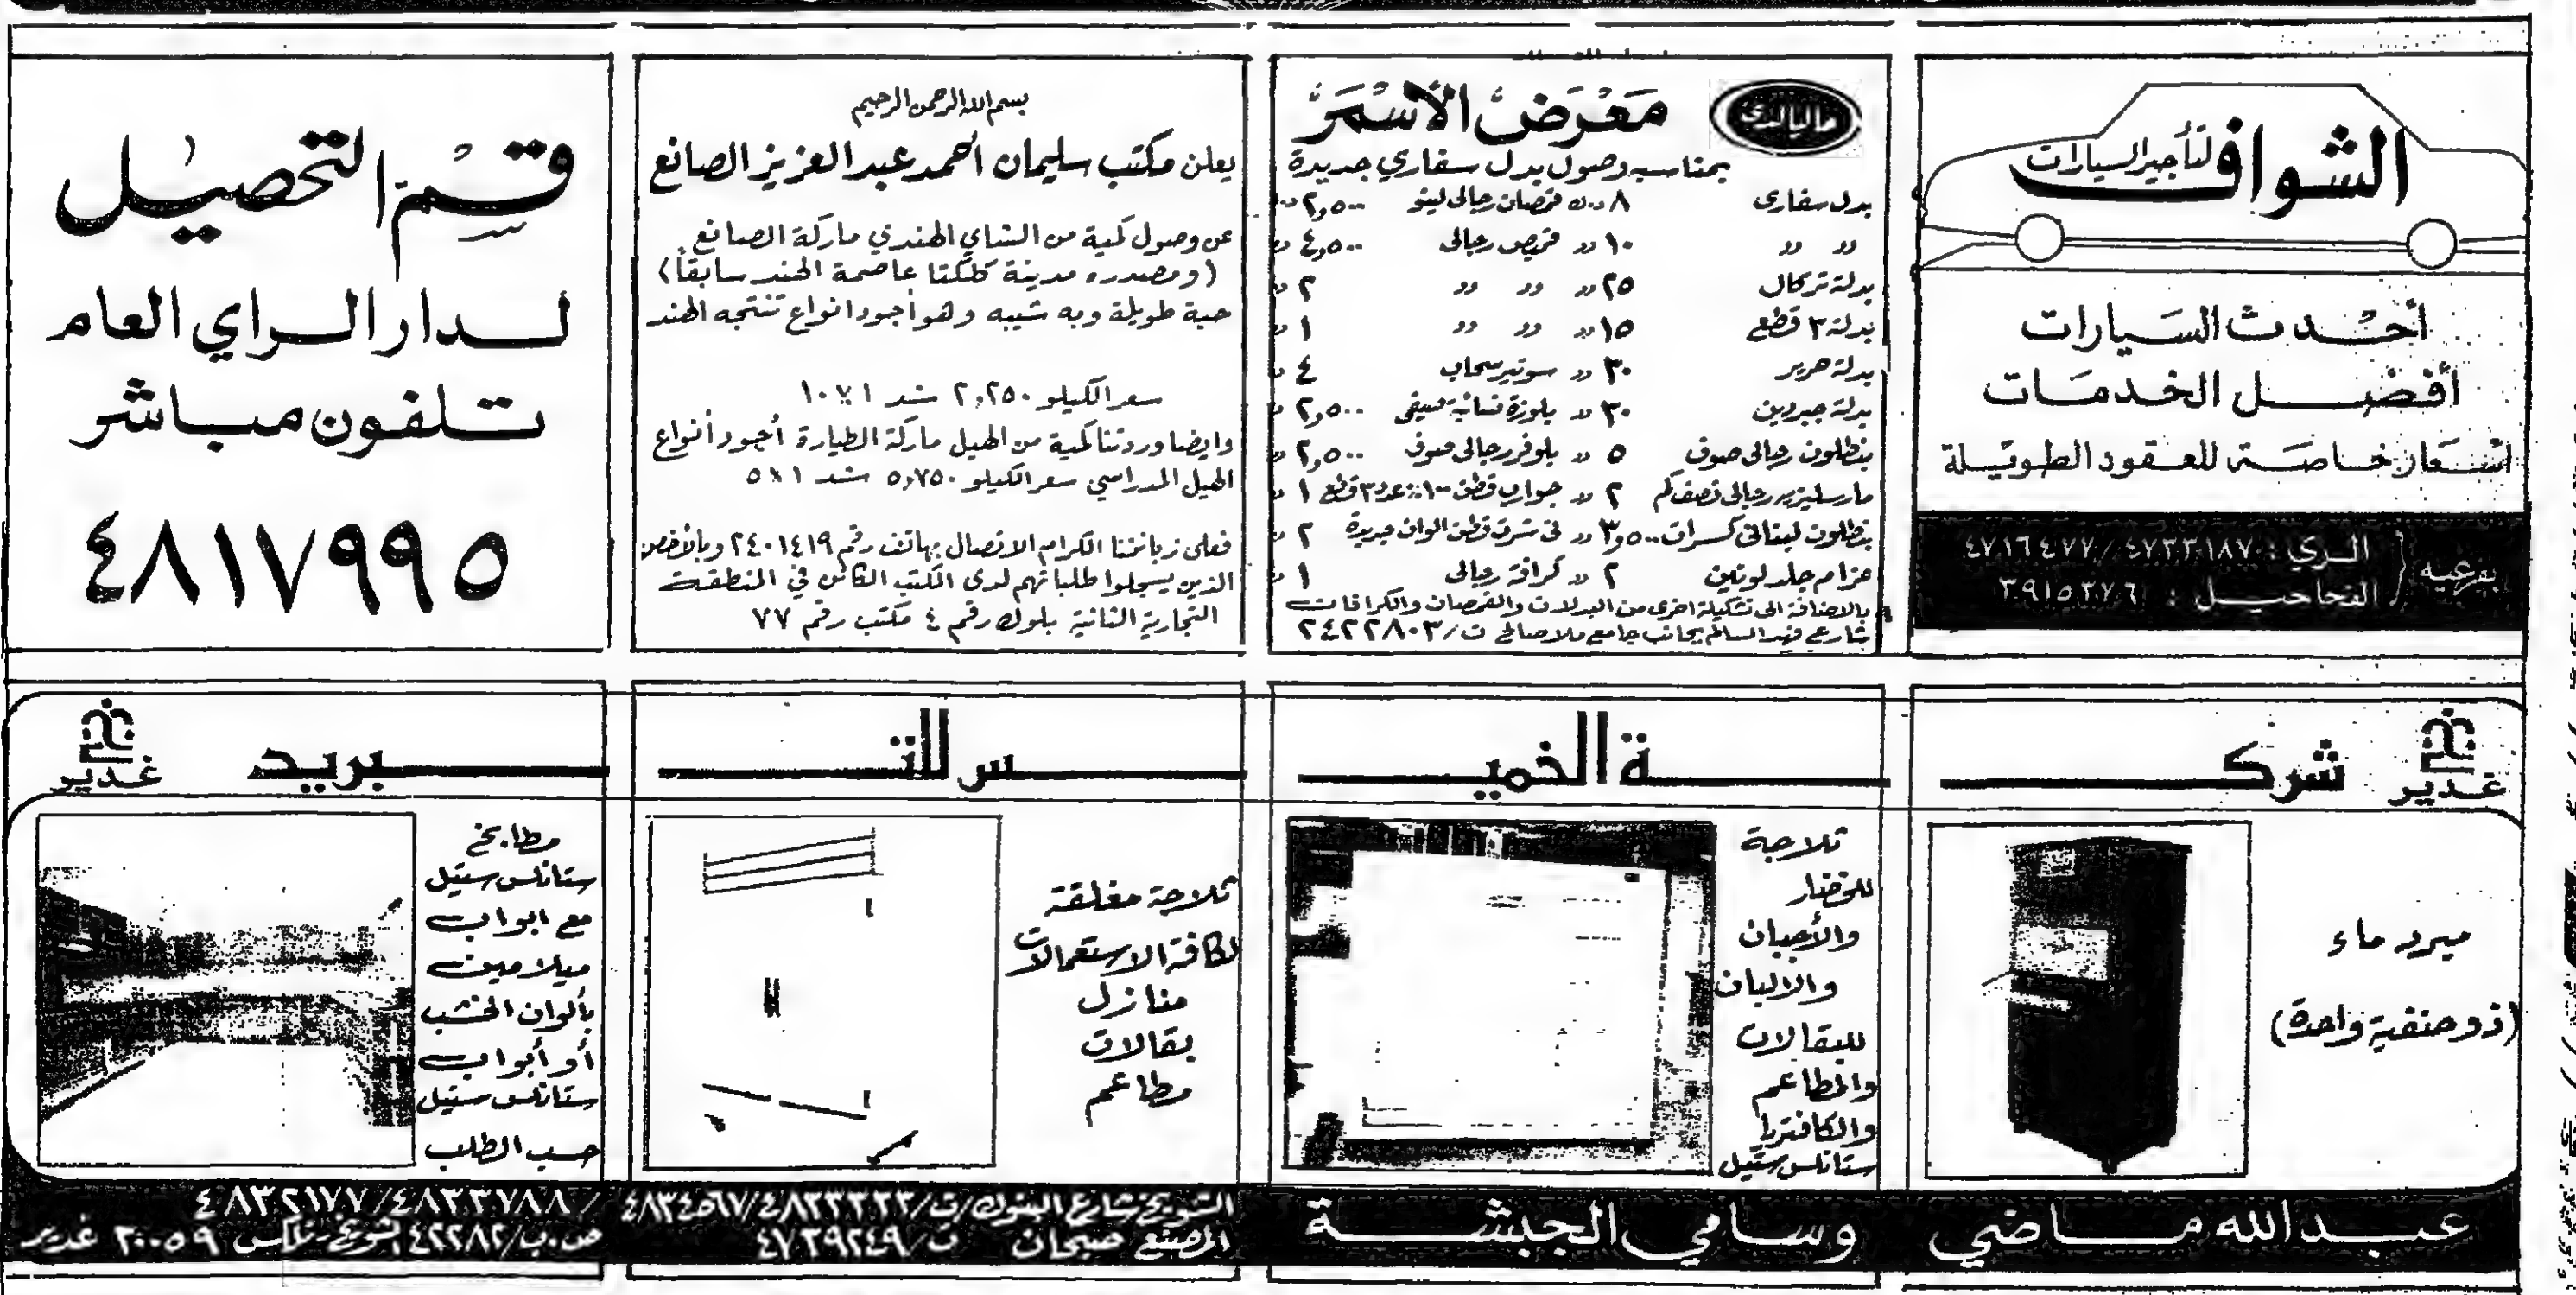 الشواف
لتأجير السيارات
أحدث السيارات
أفضل الخدمات
أسعار خاصة للعقود الطويلة
بفرعيه
الري : ٤٧٣٣١٨٧ / ٤٧١٦٤٧٧
الفحاحيل : ٣٩١٥٣٧٦
معرض الأسمر
بمناسبه وصول بدل سفاري جديدة
بدل سفارى ٨ د.ك قمصان رجالى لينو ٢,٥٠٠
" " ١٠ " قميص رجالى ٤,٥٠٠
بدلة تركال ٢٥ " " " ٢
بدلة ٣ قطع ١٥ " " " ١
بدلة حرير ٣٠ " سوتير سحاب ٤
بدلة جبردين ٣٠ " بلوزة نسائية صيفى ٢,٥٠٠
بنطلون رجالى صوف ٥ " بلوفر رجالى صوف ٢,٥٠٠
مارسليزيه رجالى نصف كم ٢ " جوارب قطن ١٠٠٪ عدد ٣ قطع ١
بنطلون ليفالى كسرات ٣,٥٠٠ " تى شرت قطن الوان جديدة ٢
حزام جلد لوتين ٢ " كرافة رجالى ١
بالاضافة الى تشكيلة اخرى من البدلات والقمصان والكرافات
شارع فهد السالم بجانب جامع ملا صالح ت/٢٤٢٢٨٠٣
بسم الله الرحمن الرحيم
يعلن مكتب سليمان أحمد عبد العزيز الصانع
عن وصول كمية من الشاي الهندي ماركة الصانع
(ومصدره مدينة كلكتا عاصمة الهند سابقاً)
حبة طويلة وبه شيبه وهو أجود انواع تنتجه الهند
سعر الكيلو ٢,٢٥٠ شد ١ × ١٠
وايضا وردتنا كمية من الهيل ماركة الطيارة أجود أنواع
الهيل المدراسي سعر الكيلو ٥,٧٥٠ شد ١ × ٥
فعلى زبائننا الكرام الاتصال بهاتف رقم ٢٤٠١٤١٩ وبالأخص
الذين يسجلوا طلباتهم لدى المكتب الكائن في المنطقة
التجارية الثانية بلوك رقم ٤ مكتب رقم ٧٧
قسم التحصيل
لدار الراي العام
تلفون مباشر
٤٨١٧٩٩٥
غدير
شركة الخميس للتبريد
غدير
مبرد ماء
(ذو حنفية واحدة)
ثلاجة
للخضار
والأجبان
والالبان
للبقالات
والمطاعم
والكافتريا
ستانلس ستيل
ثلاجة مغلقة
لكافة الاستعمالات
منازل
بقالات
مطاعم
مطابخ
ستانلس ستيل
مع ابواب
ميلامين
بألوان الخشب
أو أبواب
ستانلس ستيل
حسب الطلب
عبدالله ماضي وسامي الجبشة
الشويخ شارع البنوك/ت/٤٨٣٣٣٢٣/٤٨٣٤٥٦٧/٤٨٣٣٧٨٨/٤٨٣٢١٧٧
المصنع صبحان ت/٤٧٣٩٢٤٩
ص.ب/٤٢٢٨٢ الشويخ - تلكس ٢٠٠٥٩ غدير